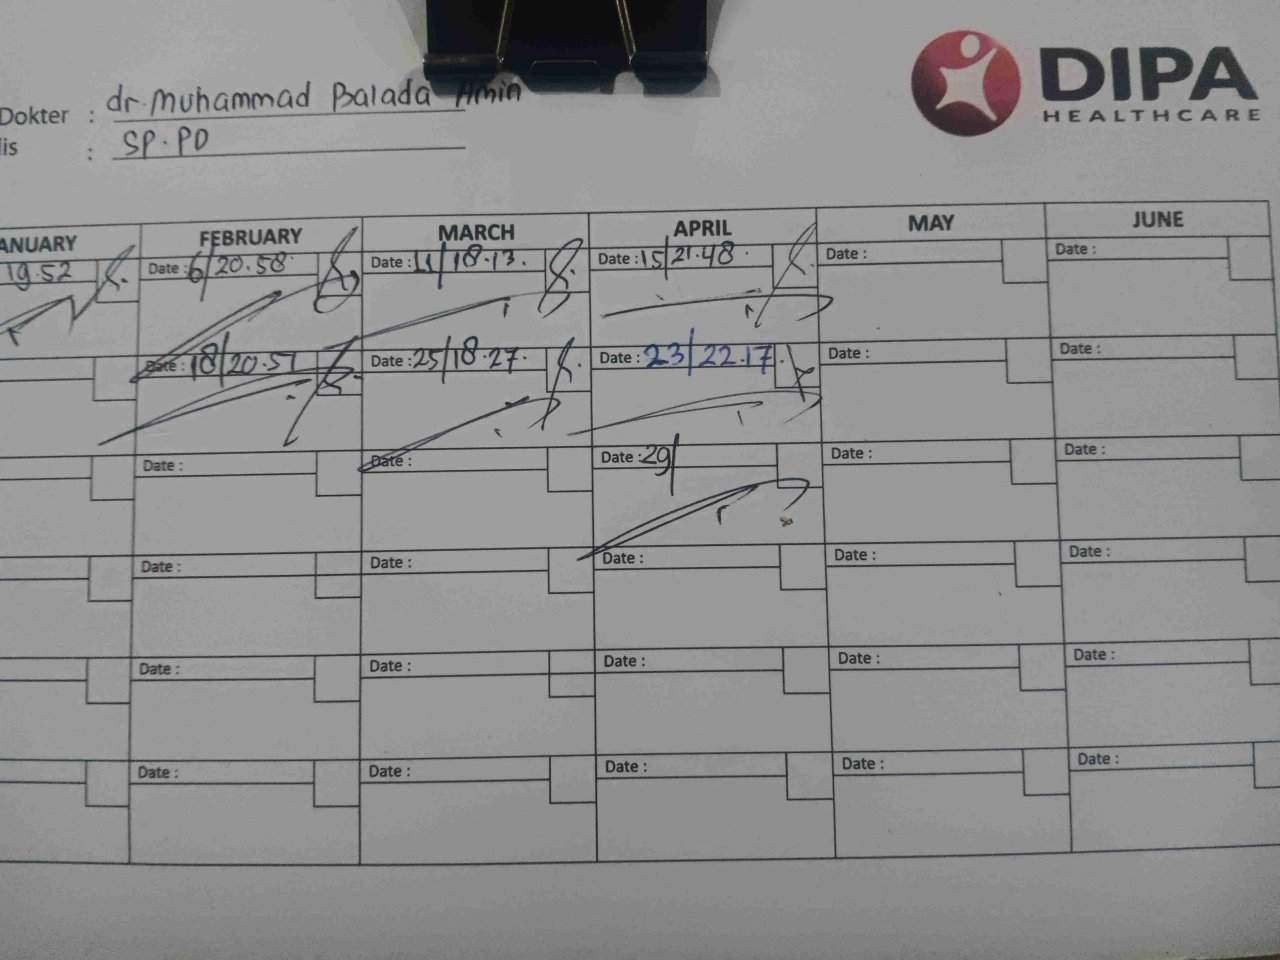 DIPA
HEALTHCARE
Dokter : dr. Muhammad Balada Amin
lis : SP.PD
ANUARY FEBRUARY MARCH APRIL MAY JUNE
19.52 Date : 6/20.58 Date : 11/18.13. Date : 15/21.48. Date : Date :
Date : 18/20.57 Date : 25/18.27. Date : 23/22.17. Date : Date :
Date : Date : Date : 29/ Date : Date :
Date : Date : Date : Date : Date :
Date : Date : Date : Date : Date :
Date : Date : Date : Date : Date :